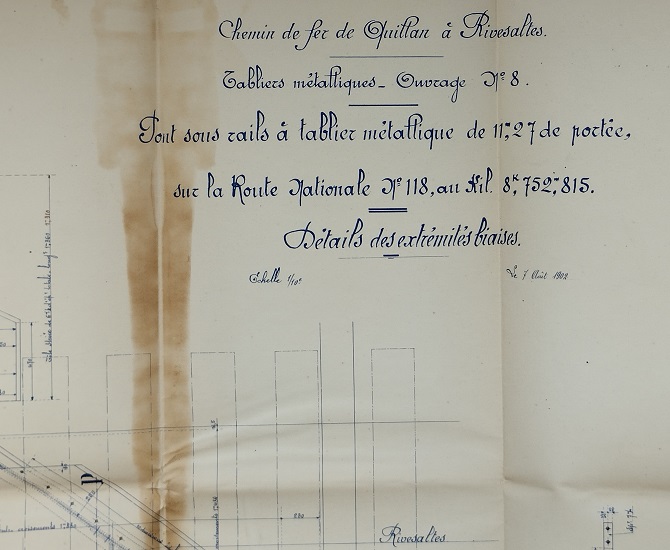 Chemin de fer de Quillan à Rivesaltes.
Tabliers métalliques_ Ouvrage N° 8.
Pont sous rails à tablier métallique de 11,m27 de portée,
sur la Route Nationale N° 118, au Kil. 8,k752,m815.
Détails des extrémités biaises.
Echelle 1/10e
Le 7 Août 1902
Rivesaltes